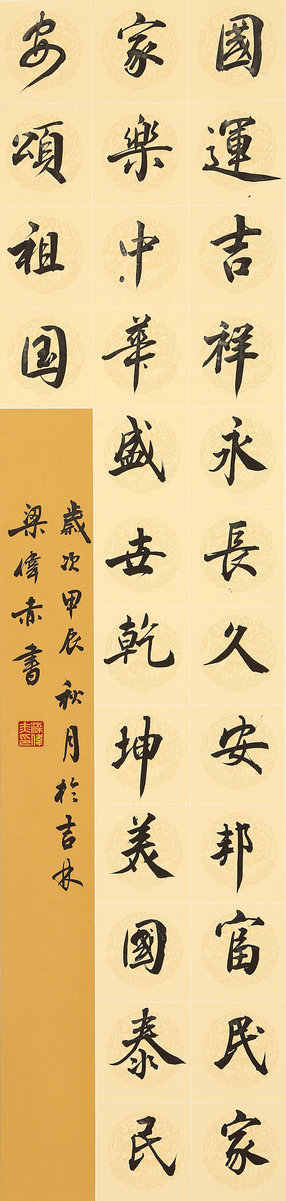 國運吉祥永長久安邦富民家
家樂中華盛世乾坤美國泰民
安頌祖国
歲次甲辰秋月於吉林
梁偉赤書